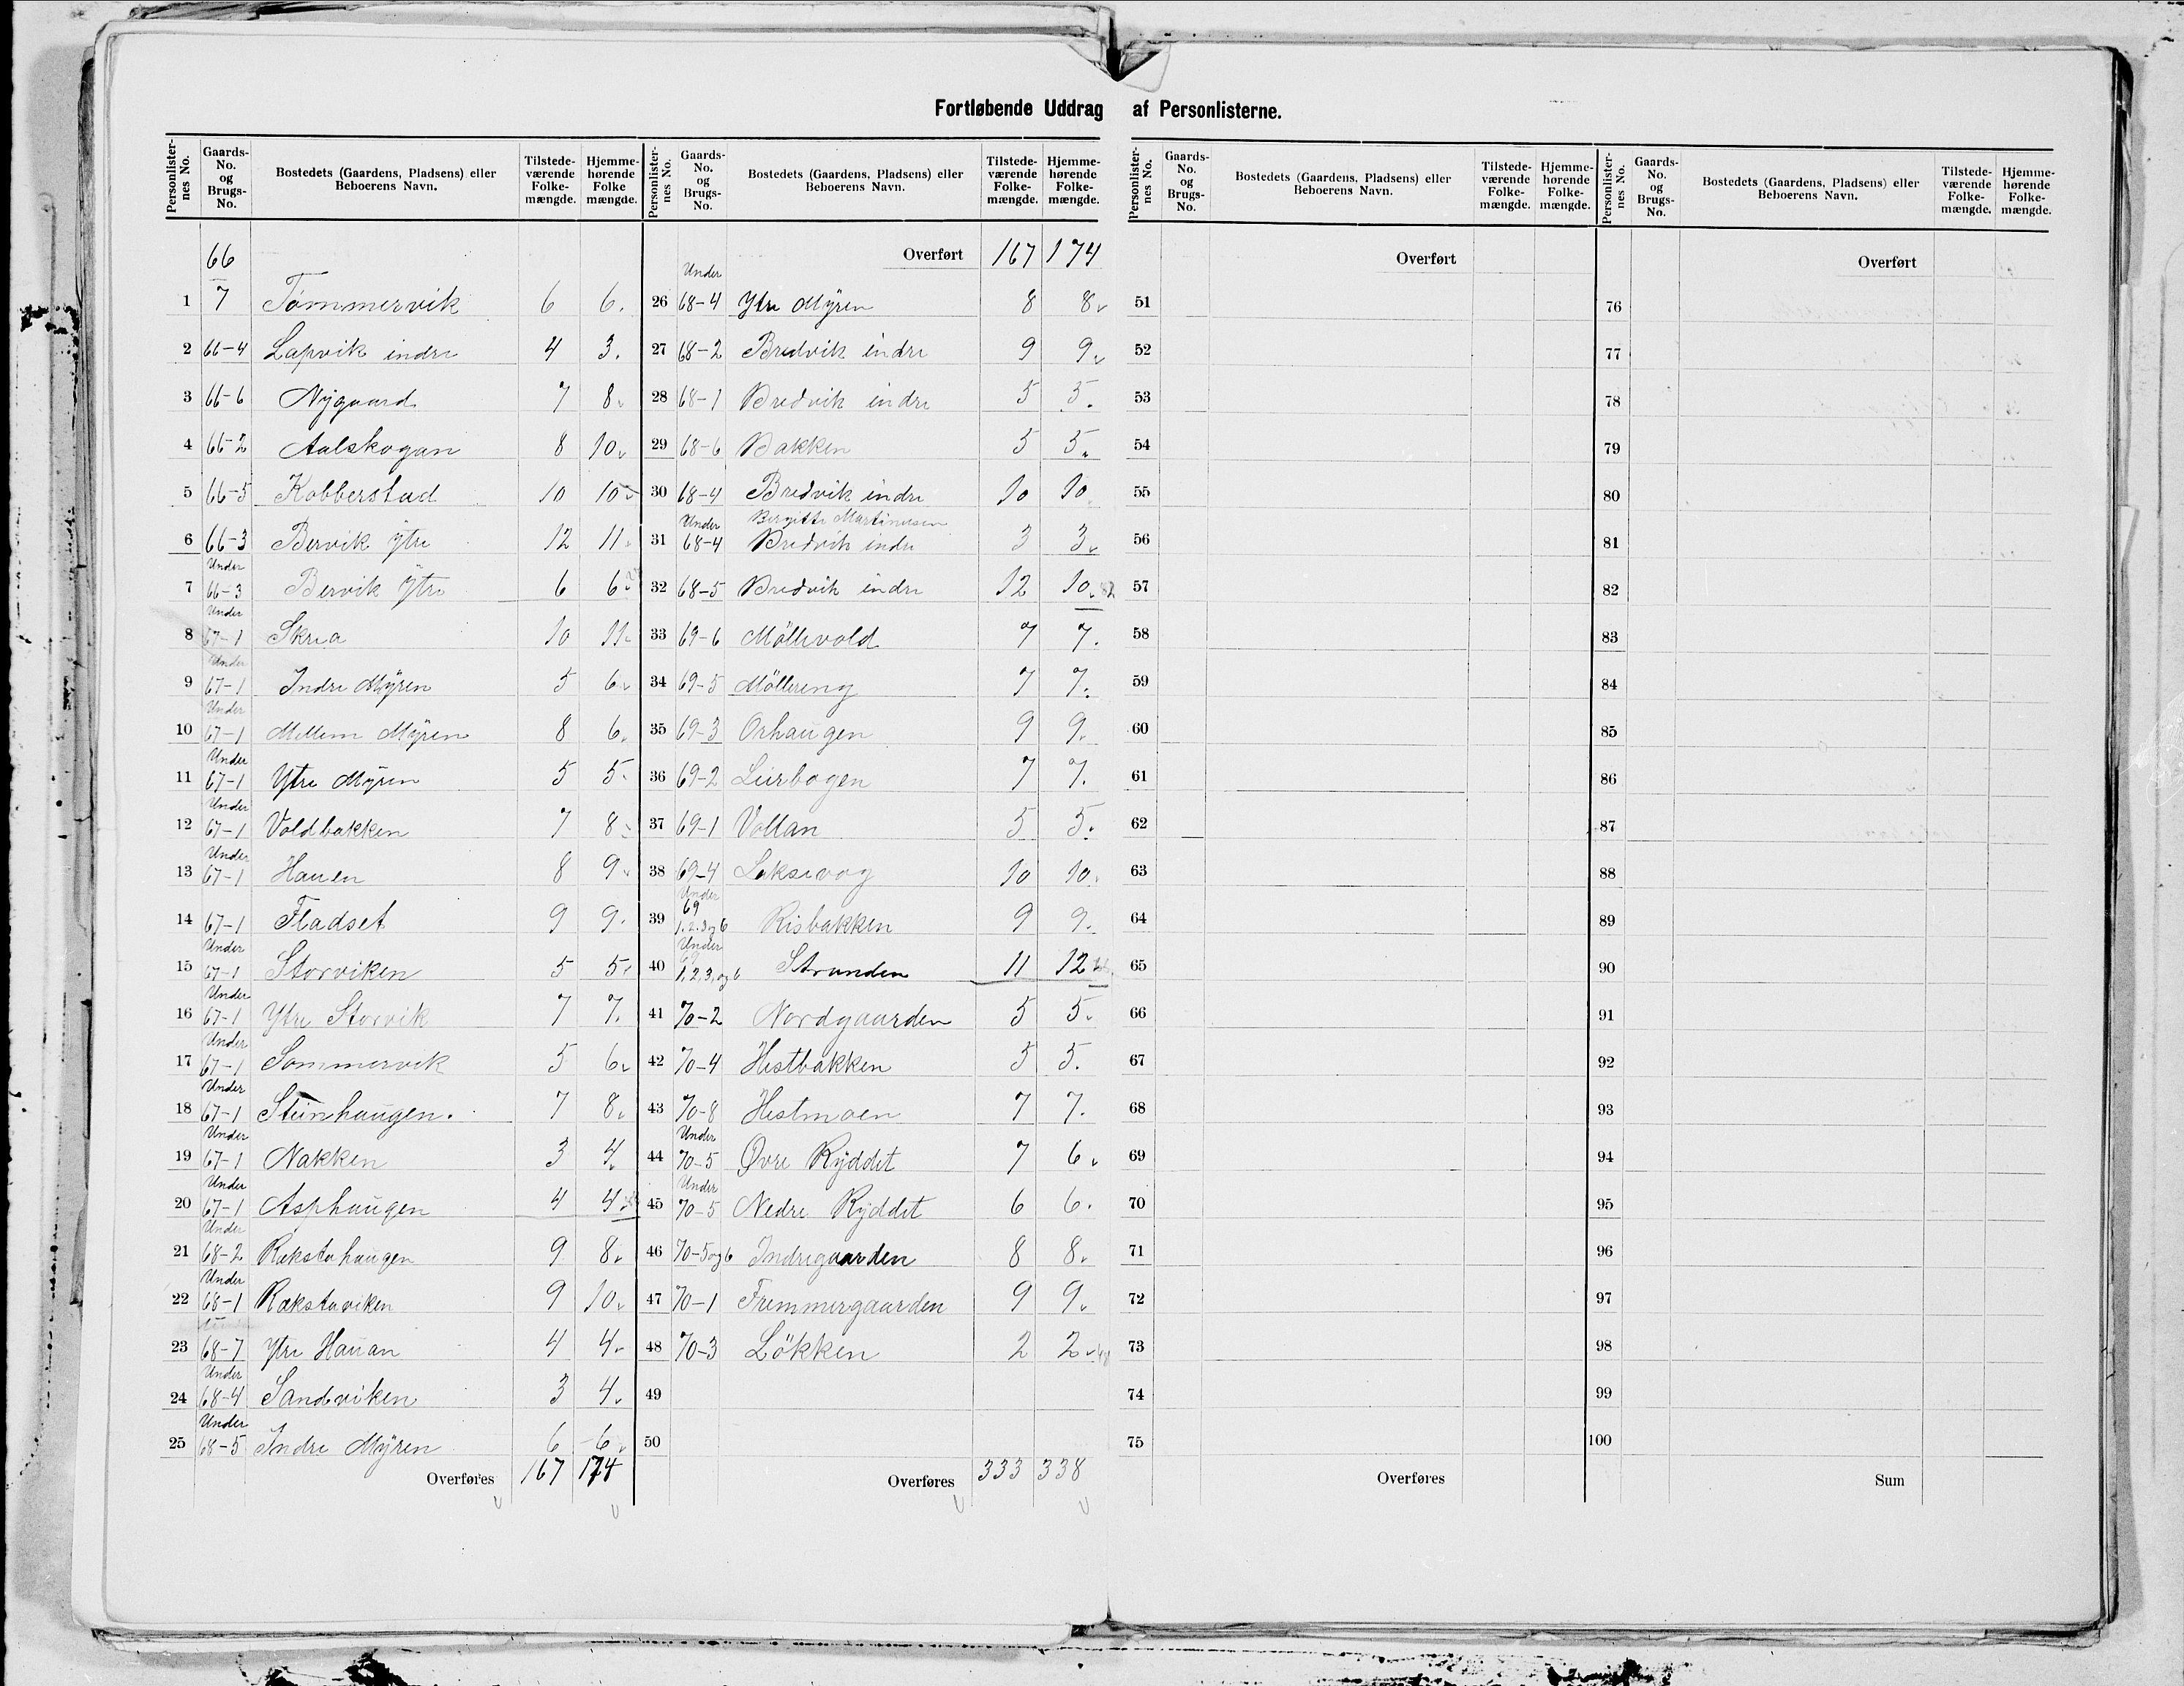 Fortløbende Uddrag af Personlisterne.
Personlisternes No. Gaards-No. og Brugs-No. Bostedets (Gaardens, Pladsens) eller Beboerens Navn. Tilstedeværende Folkemængde. Hjemmehørende Folkemængde.
66
1 7 Tömmervik 6 6.
2 66-4 Lapvik indre 4 3.
3 66-6 Nygaard 7 8
4 66-2 Aalskogan 8 10
5 66-5 Kobberstad 10 10
6 66-3 Bervik ytre 12 11
7 Under 66-3 Bervik Ytre 6 6
8 Under 67-1 Skrea 10 11
9 Under 67-1 Indre Myren 5 6
10 Under 67-1 Mellem Myren 8 6
11 Under 67-1 Ytre Myren 5 5
12 Under 67-1 Voldbakken 7 8
13 Under 67-1 Hauen 8 9
14 67-1 Fladset 9 9
15 Under 67-1 Storviken 5 5
16 Under 67-1 Ytre Storvik 7 7
17 Under 67-1 Sommervik 5 6
18 Under 67-1 Steinhaugen. 7 8
19 Under 67-1 Nakken 3 4
20 Under 67-1 Asphaugen 4 4
21 Under 68-2 Rakstahaugen 9 8
22 Under 68-1 Rakstaviken 9 10
23 68-7 Ytre Hauan 4 4
24 Under 68-4 Sandviken 3 4
25 Under 68-5 Indre Myren 6 6
Overføres 167 174
Personlisternes No. Gaards-No. og Brugs-No. Bostedets (Gaardens, Pladsens) eller Beboerens Navn. Tilstedeværende Folkemængde. Hjemmehørende Folkemængde.
Overført 167 174
26 Under 68-4 Ytre Myren 8 8
27 68-2 Bredvik indre 9 9
28 68-1 Bredvik indre 5 5
29 68-6 Bakken 5 5
30 68-4 Bredvik indre 10 10
Bergitte Martinusen
31 Under 68-4 Bredvik indre 3 3
32 68-5 Bredvik indre 12 10
33 69-6 Möllevold 7 7
34 69-5 Möllereng 7 7
35 69-3 Orhaugen 9 9
36 69-2 Leirbogen 7 7
37 69-1 Vollan 5 5
38 69-4 Leksevog 10 10
39 Under 69 1.2.3 og 6 Risbakken 9 9
40 Under 69 1,2,3, og 6 Stranden 11 12
41 70-2 Nordgaarden 5 5
42 70-4 Hestbakken 5 5
43 70-8 Hestmoen 7 7
44 Under 70-5 Øvre Ryddet 7 6
45 Under 70-5 Nedre Ryddet 6 6
46 70-5 og 6 Indregaarden 8 8
47 70-1 Fremmergaarden 9 9
48 70-3 Lökken 2 2
49
50
Overføres 333 338
Personlisternes No. Gaards-No. og Brugs-No. Bostedets (Gaardens, Pladsens) eller Beboerens Navn. Tilstedeværende Folkemængde. Hjemmehørende Folkemængde.
Overført
51
52
53
54
55
56
57
58
59
60
61
62
63
64
65
66
67
68
69
70
71
72
73
74
75
Overføres
Personlisternes No. Gaards-No. og Brugs-No. Bostedets (Gaardens, Pladsens) eller Beboerens Navn. Tilstedeværende Folkemængde. Hjemmehørende Folkemængde.
Overført
76
77
78
79
80
81
82
83
84
85
86
87
88
89
90
91
92
93
94
95
96
97
98
99
100
Sum